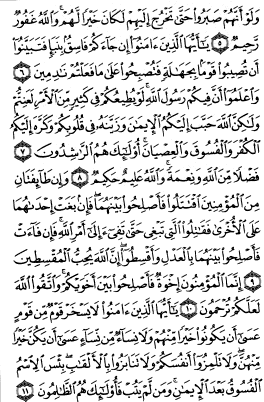 وَلَوْ أَنَّهُمْ صَبَرُوا حَتَّىٰ تَخْرُجَ إِلَيْهِمْ لَكَانَ خَيْرًا لَّهُمْ وَاللَّهُ غَفُورٌ
رَّحِيمٌ ٥ يَٰٓأَيُّهَا الَّذِينَ ءَامَنُوٓا إِن جَآءَكُمْ فَاسِقٌۢ بِنَبَإٍ فَتَبَيَّنُوٓا
أَن تُصِيبُوا قَوْمًۢا بِجَهَٰلَةٍ فَتُصْبِحُوا عَلَىٰ مَا فَعَلْتُمْ نَٰدِمِينَ ٦
وَاعْلَمُوٓا أَنَّ فِيكُمْ رَسُولَ اللَّهِ لَوْ يُطِيعُكُمْ فِي كَثِيرٍ مِّنَ الْأَمْرِ لَعَنِتُّمْ
وَلَٰكِنَّ اللَّهَ حَبَّبَ إِلَيْكُمُ الْإِيمَٰنَ وَزَيَّنَهُۥ فِي قُلُوبِكُمْ وَكَرَّهَ إِلَيْكُمُ
الْكُفْرَ وَالْفُسُوقَ وَالْعِصْيَانَ أُولَٰٓئِكَ هُمُ الرَّٰشِدُونَ ٧
فَضْلًا مِّنَ اللَّهِ وَنِعْمَةً وَاللَّهُ عَلِيمٌ حَكِيمٌ ٨ وَإِن طَآئِفَتَانِ
مِنَ الْمُؤْمِنِينَ اقْتَتَلُوا فَأَصْلِحُوا بَيْنَهُمَا فَإِنۢ بَغَتْ إِحْدَىٰهُمَا
عَلَى الْأُخْرَىٰ فَقَٰتِلُوا الَّتِي تَبْغِي حَتَّىٰ تَفِيٓءَ إِلَىٰٓ أَمْرِ اللَّهِ فَإِن فَآءَتْ
فَأَصْلِحُوا بَيْنَهُمَا بِالْعَدْلِ وَأَقْسِطُوٓا إِنَّ اللَّهَ يُحِبُّ الْمُقْسِطِينَ
٩ إِنَّمَا الْمُؤْمِنُونَ إِخْوَةٌ فَأَصْلِحُوا بَيْنَ أَخَوَيْكُمْ وَاتَّقُوا اللَّهَ
لَعَلَّكُمْ تُرْحَمُونَ ١٠ يَٰٓأَيُّهَا الَّذِينَ ءَامَنُوا لَا يَسْخَرْ قَوْمٌ مِّن قَوْمٍ
عَسَىٰٓ أَن يَكُونُوا خَيْرًا مِّنْهُمْ وَلَا نِسَآءٌ مِّن نِّسَآءٍ عَسَىٰٓ أَن يَكُنَّ خَيْرًا
مِّنْهُنَّ وَلَا تَلْمِزُوٓا أَنفُسَكُمْ وَلَا تَنَابَزُوا بِالْأَلْقَٰبِ بِئْسَ الِاسْمُ
الْفُسُوقُ بَعْدَ الْإِيمَٰنِ وَمَن لَّمْ يَتُبْ فَأُولَٰٓئِكَ هُمُ الظَّٰلِمُونَ ١١